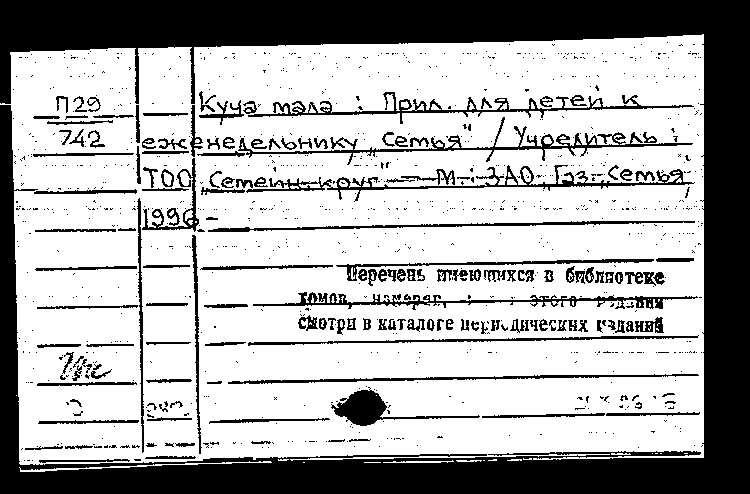 П29
742
Куча мала : Прил. для детей к
еженедельнику „Семья" / Учредитель :
ТОО „Семейн. круг." — М. : ЗАО „Газ. „Семья",
1996 -
Перечень имеющихся в библиотеке
томов, номеров, этого издания
смотри в каталоге периодических изданий